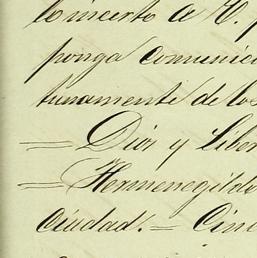 Concierto á V. p
ponga comunic
tunamente de los
= Dios y Liber
= Hermenegildo
Ciudad. = Cinc